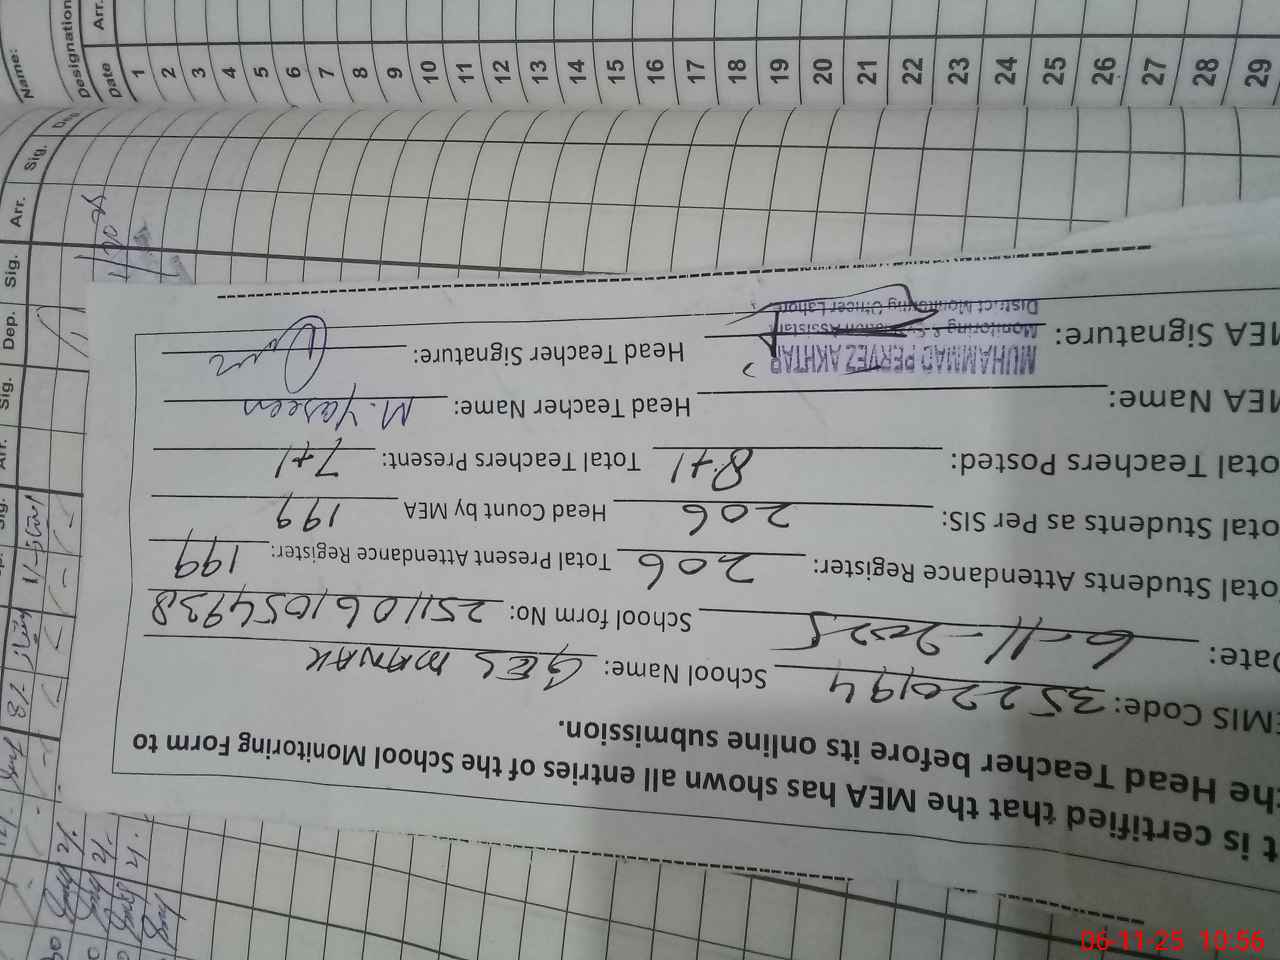 It is certified that the MEA has shown all entries of the School Monitoring Form to
the Head Teacher before its online submission.
EMIS Code: 35220194 School Name: GES MANAK
Date: 6-11-2025 School form No: 2511061054938
Total Students Attendance Register: 206 Total Present Attendance Register: 199
Total Students as Per SIS: 206 Head Count by MEA 199
Total Teachers Posted: 8+1 Total Teachers Present: 7+1
MEA Name: Head Teacher Name: M. Yaseen
MEA Signature: Head Teacher Signature:
MUHAMMAD PERVEZ AKHTAR
Monitoring & Evaluation Assistant
District Monitoring Officer Lahore
Name:
Designation
Date Arr.
1
2
3
4
5
6
7
8
9
10
11
12
13
14
15
16
17
18
19
20
21
22
23
24
25
26
27
28
29
Arr. Sig. Dep.
Sig. Arr. Sig. Dep. Sig.
06-11-25 10:56